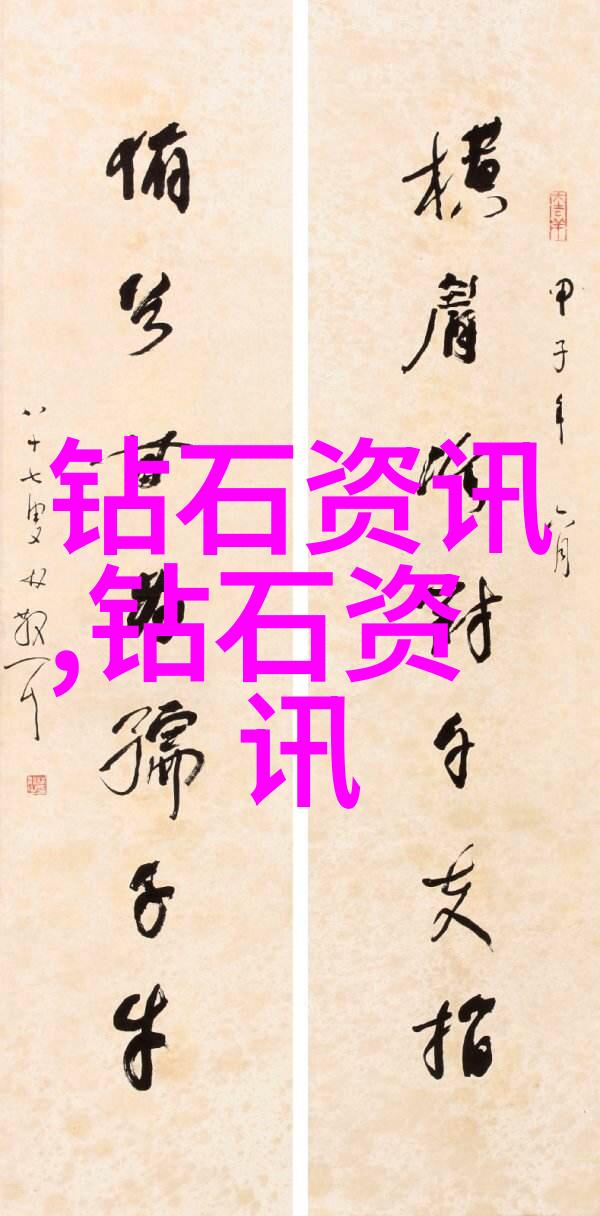 横眉冷对千夫指
甲子年六月
俯首甘为孺子牛
八十七叟林散耳
钻石资讯
,钻石资
讯